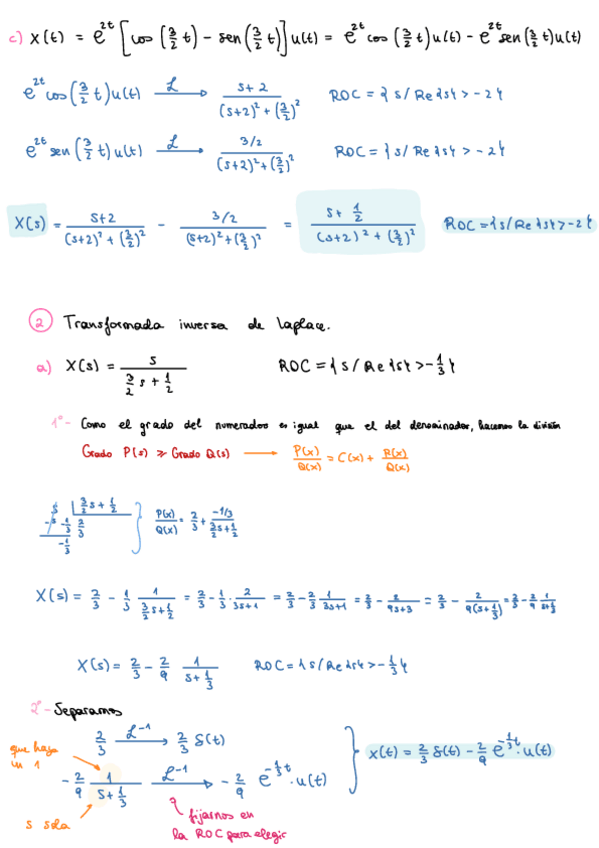 c) x(t) = e^{2t} [cos (3/2 t) - sen (3/2 t)] u(t) = e^{2t} cos (3/2 t) u(t) - e^{2t} sen (3/2 t) u(t)
e^{2t} cos (3/2 t) u(t) —ℒ→ (s+2)/((s+2)² + (3/2)²) ROC = {s/ Re{s} > -2}
e^{2t} sen (3/2 t) u(t) —ℒ→ (3/2)/((s+2)² + (3/2)²) ROC = {s/ Re{s} > -2}
X(s) = (s+2)/((s+2)² + (3/2)²) - (3/2)/((s+2)² + (3/2)²) = (s + 1/2)/((s+2)² + (3/2)²) ROC = {s/ Re{s} > -2}
2 Transformada inversa de Laplace.
a) X(s) = s/(3/2 s + 1/2) ROC = {s/ Re{s} > -1/3}
1º- Como el grado del numerador es igual que el del denominador, hacemos la división
Grado P(s) ≥ Grado Q(s) → P(x)/Q(x) = C(x) + R(x)/Q(x)
s | 3/2 s + 1/2
-s -1/3 2/3
-1/3
P(x)/Q(x) = 2/3 + (-1/3)/(3/2 s + 1/2)
X(s) = 2/3 - 1/3 1/(3/2 s + 1/2) = 2/3 - 1/3 · 2/(3s+1) = 2/3 - 2/3 1/(3s+1) = 2/3 - 2/(9s+3) = 2/3 - 2/(9(s+1/3)) = 2/3 - 2/9 1/(s+1/3)
X(s) = 2/3 - 2/9 1/(s + 1/3) ROC = {s/ Re{s} > -1/3}
2º- Separamos
2/3 —ℒ⁻¹→ 2/3 δ(t)
que haya un 1
-2/9 1/(s + 1/3) —ℒ⁻¹→ -2/9 e^{-1/3 t} · u(t)
x(t) = 2/3 δ(t) - 2/9 e^{-1/3 t} · u(t)
s sola
fijarnos en
la ROC para elegir